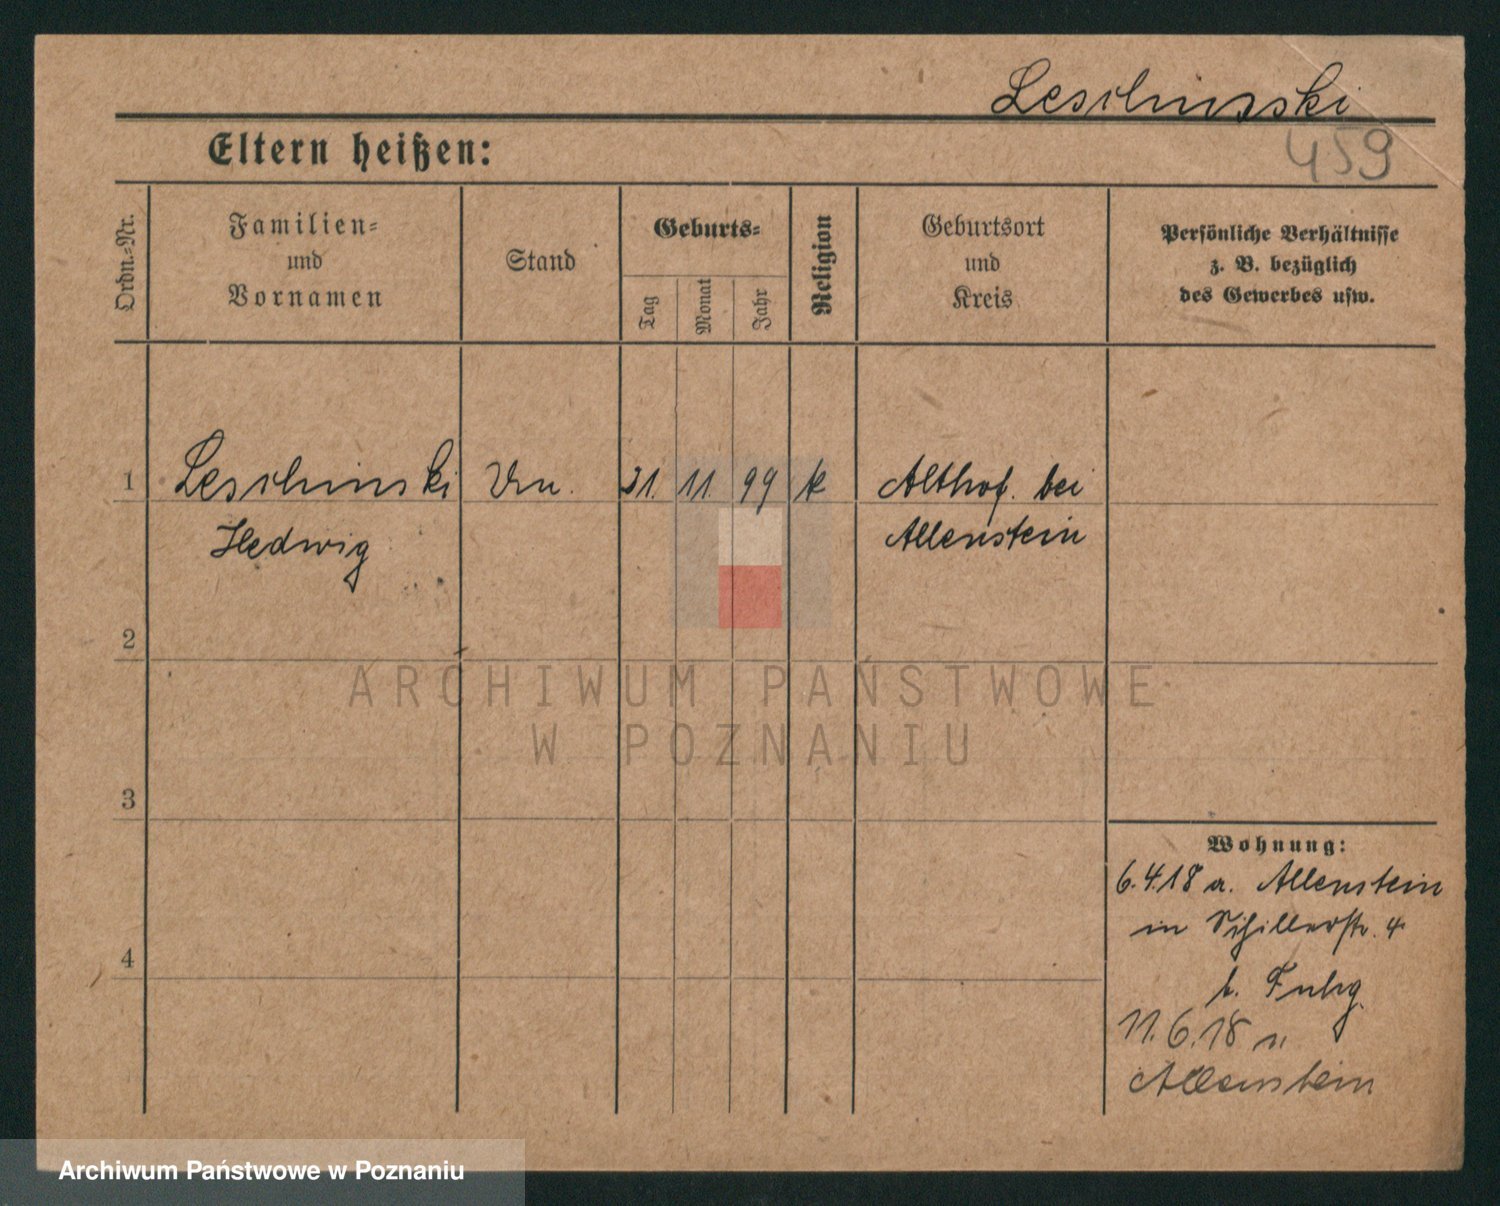 Leschinski
459
Eltern heißen:
Ordn.-Nr.
Familien-
und
Vornamen
Stand
Geburts-
Tag
Monat
Jahr
Religion
Geburtsort
und
Kreis
Persönliche Verhältnisse
z. B. bezüglich
des Gewerbes usw.
1
Leschinski
Hedwig
21. 11. 99
k
Althof. bei
Allenstein
2
3
4
Wohnung:
6.4.18 a. Allenstein
in Schillerstr. 4
b. Fuhg
11.6.18 n.
Allenstein
ARCHIWUM PAŃSTWOWE
W POZNANIU
Archiwum Państwowe w Poznaniu